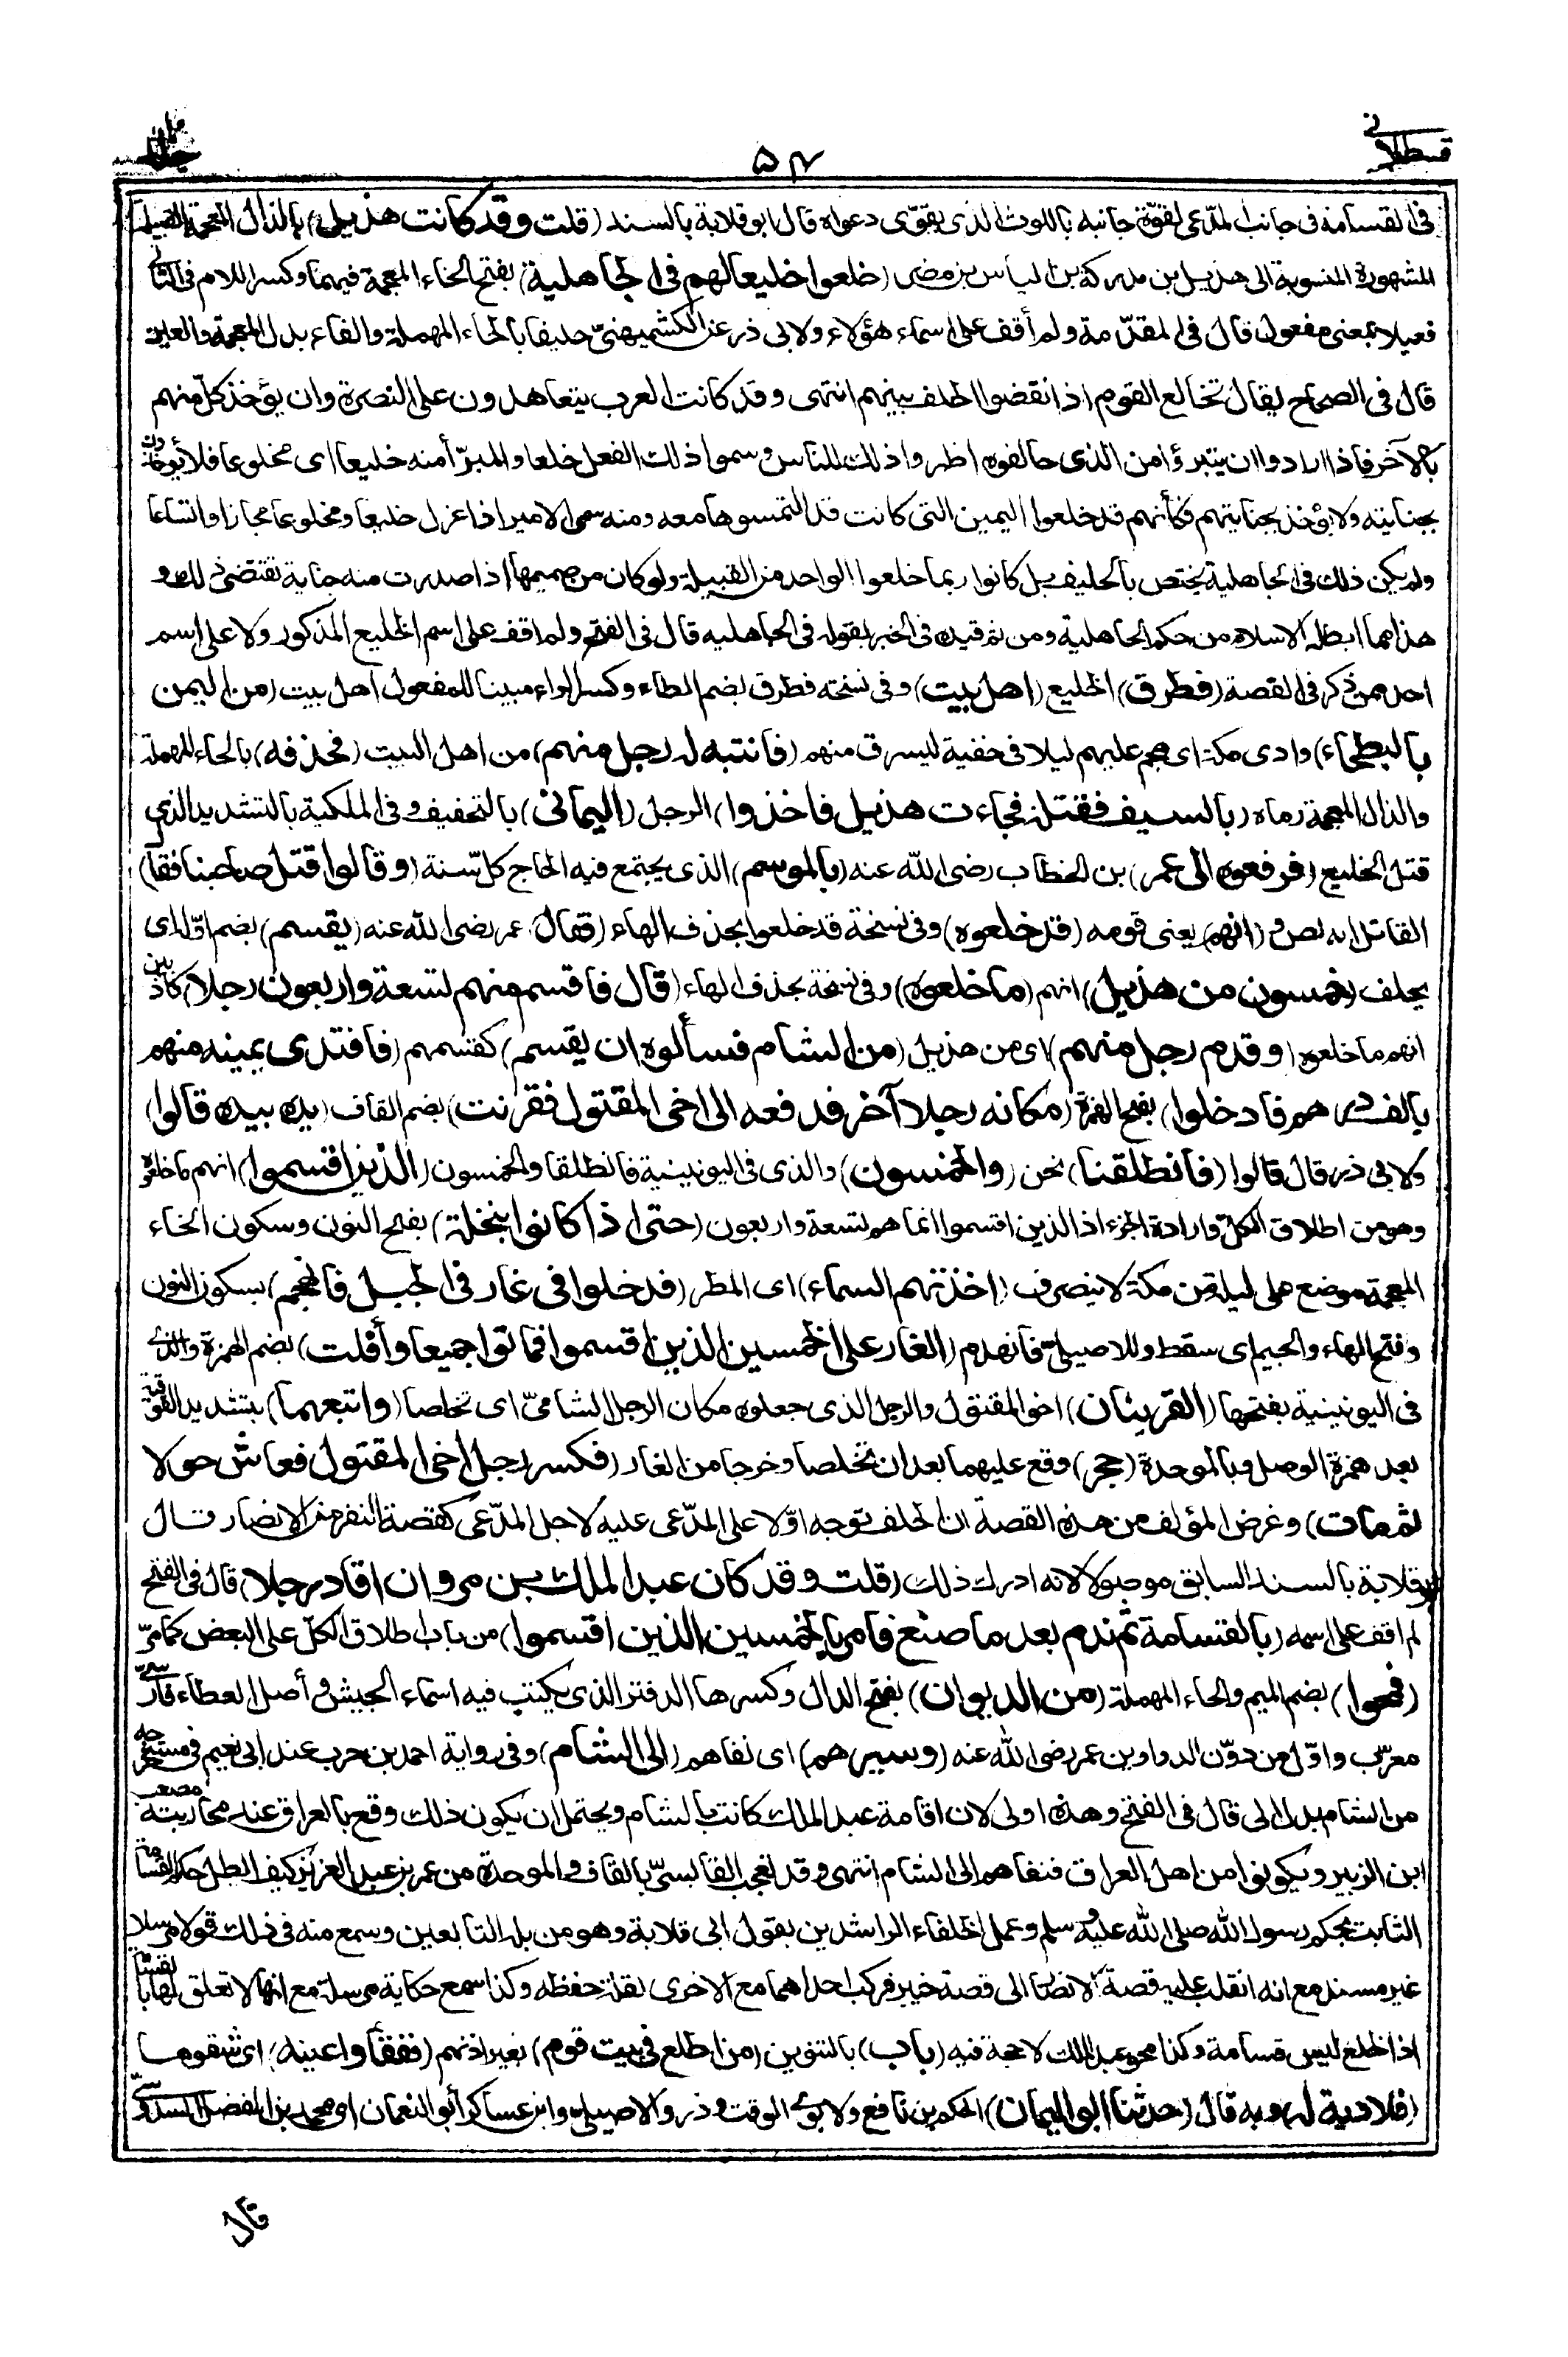 قسطلانى
٥٤
فى القسامة فى جانب المدّعى لقوّة جانبه باللوث الذى يقوّى دعواه قال ابو قلابة بالسند (قلت وقد كانت هذيل) بالذال المعجمة القبيلة
المشهورة المنسوبة الى هذيل بن مدركة بن الياس بن مضر (خلعوا خليعا لهم فى الجاهلية) بفتح الخاء المعجمة فيهما وكسر اللام فى الثانى
فعيلا بمعنى مفعول قال فى المقدّمة ولم أقف على اسماء هؤلاء ولابى ذر عن الكشميهنىّ حليفا بالحاء المهملة والفاء بدل المعجمة والعين
قال فى الصحاح يقال تخالع القوم اذا نقضوا الحلف بينهم انتهى وقد كانت العرب يتعاهدون على النصرة وان يؤخذ كلّ منهم
بالآخر فاذا ارادوا ان يتبرؤا من الذى حالفوه اظهروا ذلك للناس وسموا ذلك الفعل خلعا والمبرّأ منه خليعا اى مخلوعا فلا يؤخذون
بجنايته ولا يؤخذ بجنايتهم فكأنهم قد خلعوا اليمين التى كانت قد التمسوها معه ومنه سمى الامير اذا عزل خليعا ومخلوعا مجازا واتساعا
ولم يكن ذلك فى الجاهلية يختص بالحليف بل كانوا ربما خلعوا الواحد من القبيلة ولو كان من صميمها اذا صدرت منه جناية تقتضى ذلك و
هذا مما ابطله الاسلام من حكم الجاهلية ومن ثم قيده فى الخبر بقوله فى الجاهلية قال فى الفتح ولم اقف على اسم الخليع المذكور ولا على اسم
احد ممن ذكر فى القصة (فطرق) الخليع (اهل بيت) وفى نسخته فطرق بضم الطاء وكسر الراء مبينا للمفعول اهل بيت (من اليمن
بالبطحاء) وادى مكة اى هجم عليهم ليلا فى خفية ليسرق منهم (فانتبه له رجل منهم) من اهل البيت (فحذفه) بالحاء المهملة
والذال المعجمة رماه (بالسيف فقتله فجاءت هذيل فاخذوا) الرجل (اليمانى) بالتخفيف وفى الملكية بالتشديد الذى
قتل الخليع (فرفعوه الى عمر) بن الخطاب رضى الله عنه (بالموسم) الذى يجتمع فيه الحاج كلّ سنة (وقالوا قتل صاحبنا فقال)
القاتل انه لص و (انهم) يعنى قومه (قد خلعوه) وفى نسخة قد خلعوا بحذف الهاء (فقال) عمر رضى الله عنه (يقسم) بضم اوّله اى
يحلف (خمسون من هذيل) انهم (ما خلعوه) وفى نسخة بحذف الهاء (قال فاقسم منهم تسعة واربعون رجلا) كاذبين
انهم ما خلعوه (وقدم رجل منهم) اى من هذيل (من الشام فسألوه ان يقسم) كقسمهم (فافتدى يمينه منهم
بالف درهم فادخلوا) بفتح الهمزة (مكانه رجلا آخر فدفعه الى اخى المقتول فقرنت) بضم القاف (يده بيده قالوا)
ولابى ذر قال قالوا (فانطلقنا) نحن (والخمسون) والذى فى اليونينية فانطلقا والخمسون (الذين اقسموا) انهم ما خلعوه
وهو من اطلاق الكلّ وارادة الجزء اذ الذين اقتسموا انما هم تسعة واربعون (حتى اذا كانوا بنخلة) بفتح النون وسكون الخاء
المعجمة موضع على ليلة من مكة لا ينصرف (اخذتهم السماء) اى المطر (فدخلوا فى غار فى الجبل فانهجم) بسكون النون
وفتح الهاء والجيم اى سقط وللاصيلىّ فانهدم (الغار على الخمسين الذين اقسموا فماتوا جميعا وأفلت) بضم الهمزة والذى
فى اليونينية بفتحها (القرينان) اخو المقتول والرجل الذى جعلوه مكان الرجل الشامىّ اى تخلصا (واتبعهما) بتشديد الفوقية
بعد همزة الوصل وبالموحدة (حجر) وقع عليهما بعد ان تخلصا وخرجا من الغار (فكسر رجل اخى المقتول فعاش حولا
ثم مات) وغرض المؤلف من هذه القصة ان الحلف توجه اوّلا على المدّعى عليه لاجل المدّعى كقصة النفر من الانصار قال
ابو قلابة بالسند السابق موصولا لانه ادرك ذلك (قلت وقد كان عبد الملك بن مروان اقاد رجلا) قال فى الفتح
لم اقف على اسمه (بالقسامة ثم ندم بعد ما صنع فامر بالخمسين الذين اقسموا) من باب اطلاق الكلّ على البعض كما مرّ
(فمحوا) بضم الميم والحاء المهملة (من الديوان) بفتح الدال وكسرها الدفتر الذى يكتب فيه اسماء الجيش و أصل العطاء فارسىّ
معرّب واوّل من دوّن الدواوين عمر رضى الله عنه (وسيرهم) اى نفاهم (الى الشام) وفى رواية احمد بن حرب عند ابى نعيم فى مستخرجه
من الشام بدل الى قال فى الفتح وهذه اولى لان اقامة عبد الملك كانت بالشام ويحتمل ان يكون ذلك وقع بالعراق عند محاربته مصعب
ابن الزبير ويكونوا من اهل العراق فنفاهم الى الشام انتهى وقد تعجب القابسىّ بالقاف والموحدة من عمر بن عبد العزيز كيف ابطل حكم القسامة
الثابت بحكم رسول الله صلى الله عليه وسلم وعمل الخلفاء الراشدين بقول ابى قلابة وهو من بله التابعين وسمع منه فى ذلك قولا مرسلا
غير مسند مع انه انقلب عليه قصة الانصار الى قصة خيبر فركب احداهما مع الاخرى لقلة حفظه وكذا سمع حكاية مرسلة مع انها لا تعلق لها بالقسامة
اذ الخلع ليس قسامة وكذا محو عبد الملك لا حجة فيه (باب) بالتنوين (من اطلع فى بيت قوم) بغير اذنهم (ففقأوا عينه) اى شقوها
(فلا دية له) وبه قال (حدثنا ابو اليمان) الحكم بن نافع ولابوى الوقت وذر والاصيلىّ وابن عساكر أبو النعمان اى محمد بن الفضل السدوسىّ
قال